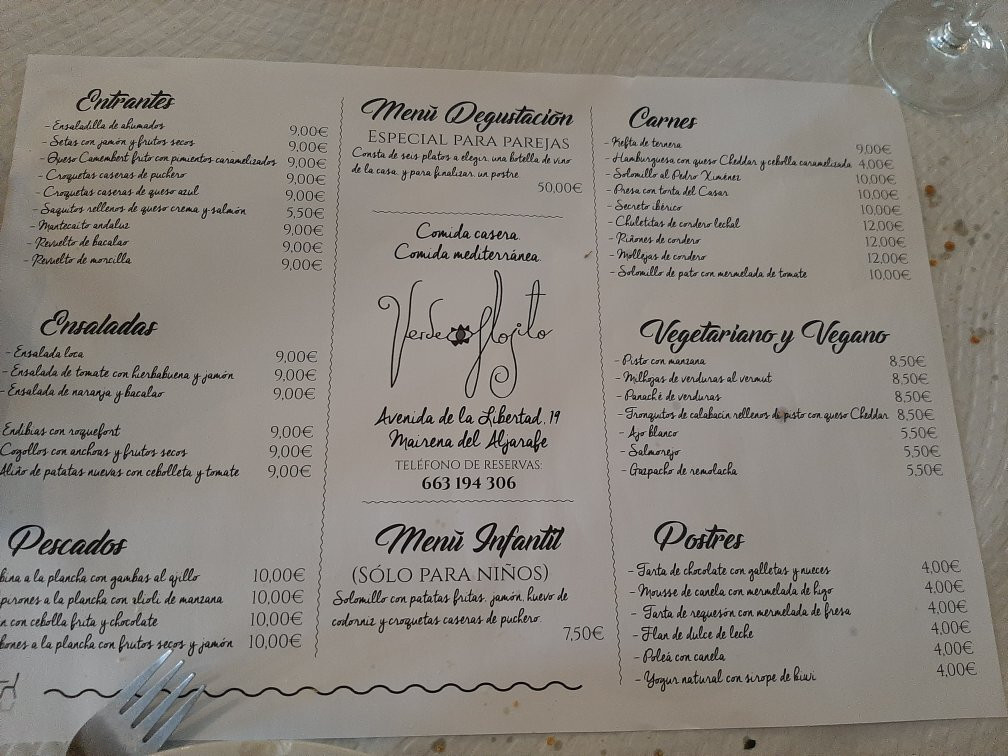 Entrantes
- Ensaladilla de ahumados 9,00€
- Setas con jamón y frutos secos 9,00€
- Queso Camembert frito con pimientos caramelizados 9,00€
- Croquetas caseras de puchero 9,00€
- Croquetas caseras de queso azul 9,00€
- Saquitos rellenos de queso crema y salmón 5,50€
- Mantecaito andaluz 9,00€
- Revuelto de bacalao 9,00€
- Revuelto de morcilla 9,00€
Ensaladas
- Ensalada loca 9,00€
- Ensalada de tomate con hierbabuena y jamón 9,00€
- Ensalada de naranja y bacalao 9,00€
Endibias con roquefort 9,00€
Cogollos con anchoas y frutos secos 9,00€
Aliño de patatas nuevas con cebolleta y tomate 9,00€
Pescados
a la plancha con gambas al ajillo 10,00€
a la plancha con alioli de manzana 10,00€
con cebolla frita y chocolate 10,00€
a la plancha con frutos secos y jamón 10,00€
Menù Degustaciòn
ESPECIAL PARA PAREJAS
Consta de seis platos a elegir, una botella de vino
de la casa, y para finalizar, un postre.
50,00€
Comida casera.
Comida mediterránea.
Verde Flojito
Avenida de la Libertad, 19
Mairena del Aljarafe
TELÉFONO DE RESERVAS:
663 194 306
Menù Infantil
(SÓLO PARA NIÑOS)
Solomillo con patatas fritas, jamón, huevo de
codorniz y croquetas caseras de puchero.
7,50€
Carnes
- Kefta de ternera 9,00€
- Hamburguesa con queso Cheddar y cebolla caramelizada 4,00€
- Solomillo al Pedro Ximénez 10,00€
- Presa con torta del Casar 10,00€
- Secreto ibérico 10,00€
- Chuletitas de cordero lechal 12,00€
- Riñones de cordero 12,00€
- Mollejas de cordero 12,00€
- Solomillo de pato con mermelada de tomate 10,00€
Vegetariano y Vegano
- Pisto con manzana 8,50€
- Milhojas de verduras al vermut 8,50€
- Panaché de verduras 8,50€
- Tronquitos de calabacín rellenos de pisto con queso Cheddar 8,50€
- Ajo blanco 5,50€
- Salmorejo 5,50€
- Gazpacho de remolacha 5,50€
Postres
- Tarta de chocolate con galletas y nueces 4,00€
- Mousse de canela con mermelada de higo 4,00€
- Tarta de requesón con mermelada de fresa 4,00€
- Flan de dulce de leche 4,00€
- Poleá con canela 4,00€
- Yogur natural con sirope de kiwi 4,00€